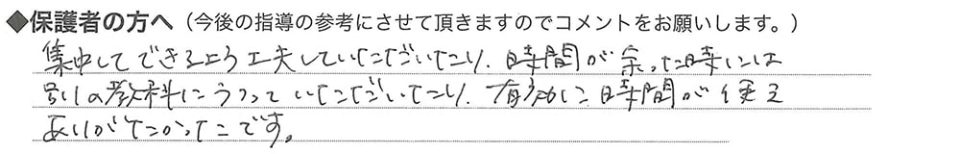 ◆保護者の方へ（今後の指導の参考にさせて頂きますのでコメントをお願いします。）
集中してできるよう工夫していただいたり、時間が余った時には
別の教科にうつっていただいたり、有効に時間が使え
ありがたかったです。